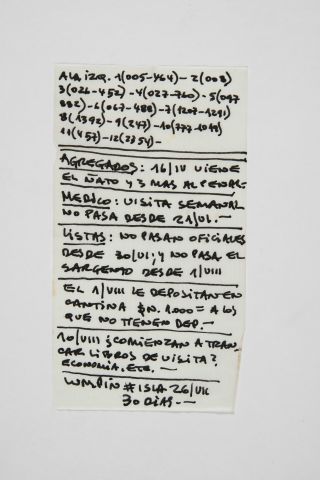 A LA IZQ. 1(005-464) - 2(008)
3(026-452) - 4(027-760) - 5(047
882) - 6(067-488) - 7(1207-1291)
8(1392) - 9(247) - 10(777-1044)
11(457) - 12(2754) -
AGREGADOS: 16/IV VIENE
EL ÑATO Y 3 MAS AL PENAL-
MEDICO: VISITA SEMANAL
NO PASA DESDE 21/VI. -
LISTAS: NO PASAN OFICIALES
DESDE 30/VI; Y NO PASA EL
SARGENTO DESDE 1/VIII
EL 1/VIII LE DEPOSITAN EN
CANTINA $N. 1.000= A LOS
QUE NO TIENEN DEP. -
10/VIII ¿COMIENZAN A TRAN
CAR LIBROS DE VISITA?
ECONOMIA. ETC. -
# ISLA 26/VII
30 DIAS. -